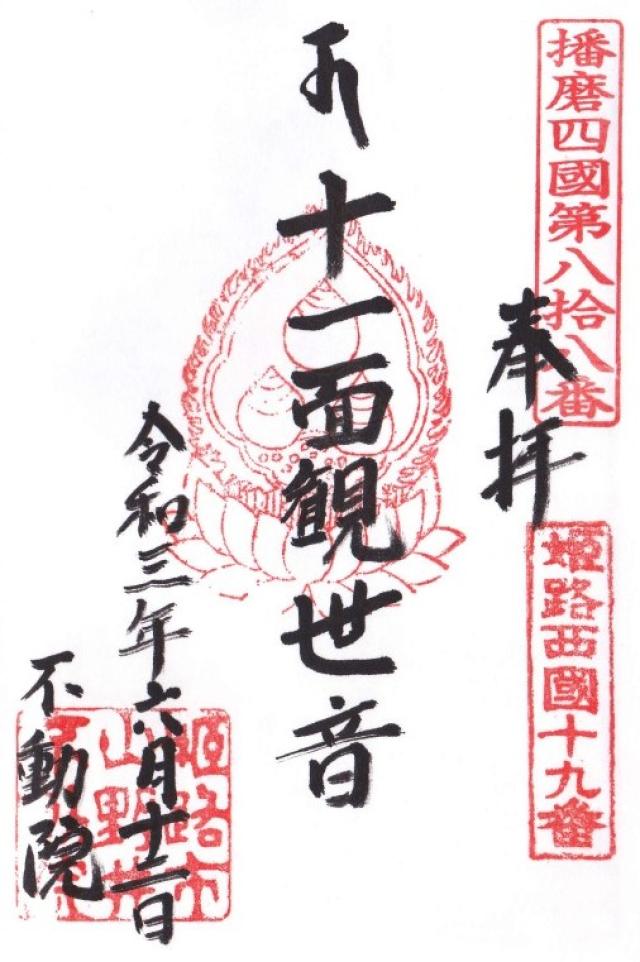 播磨四國第八拾八番
姫路西國十九番
奉拝
十一面観世音
令和三年六月十二日
不動院
姫路市
山野井